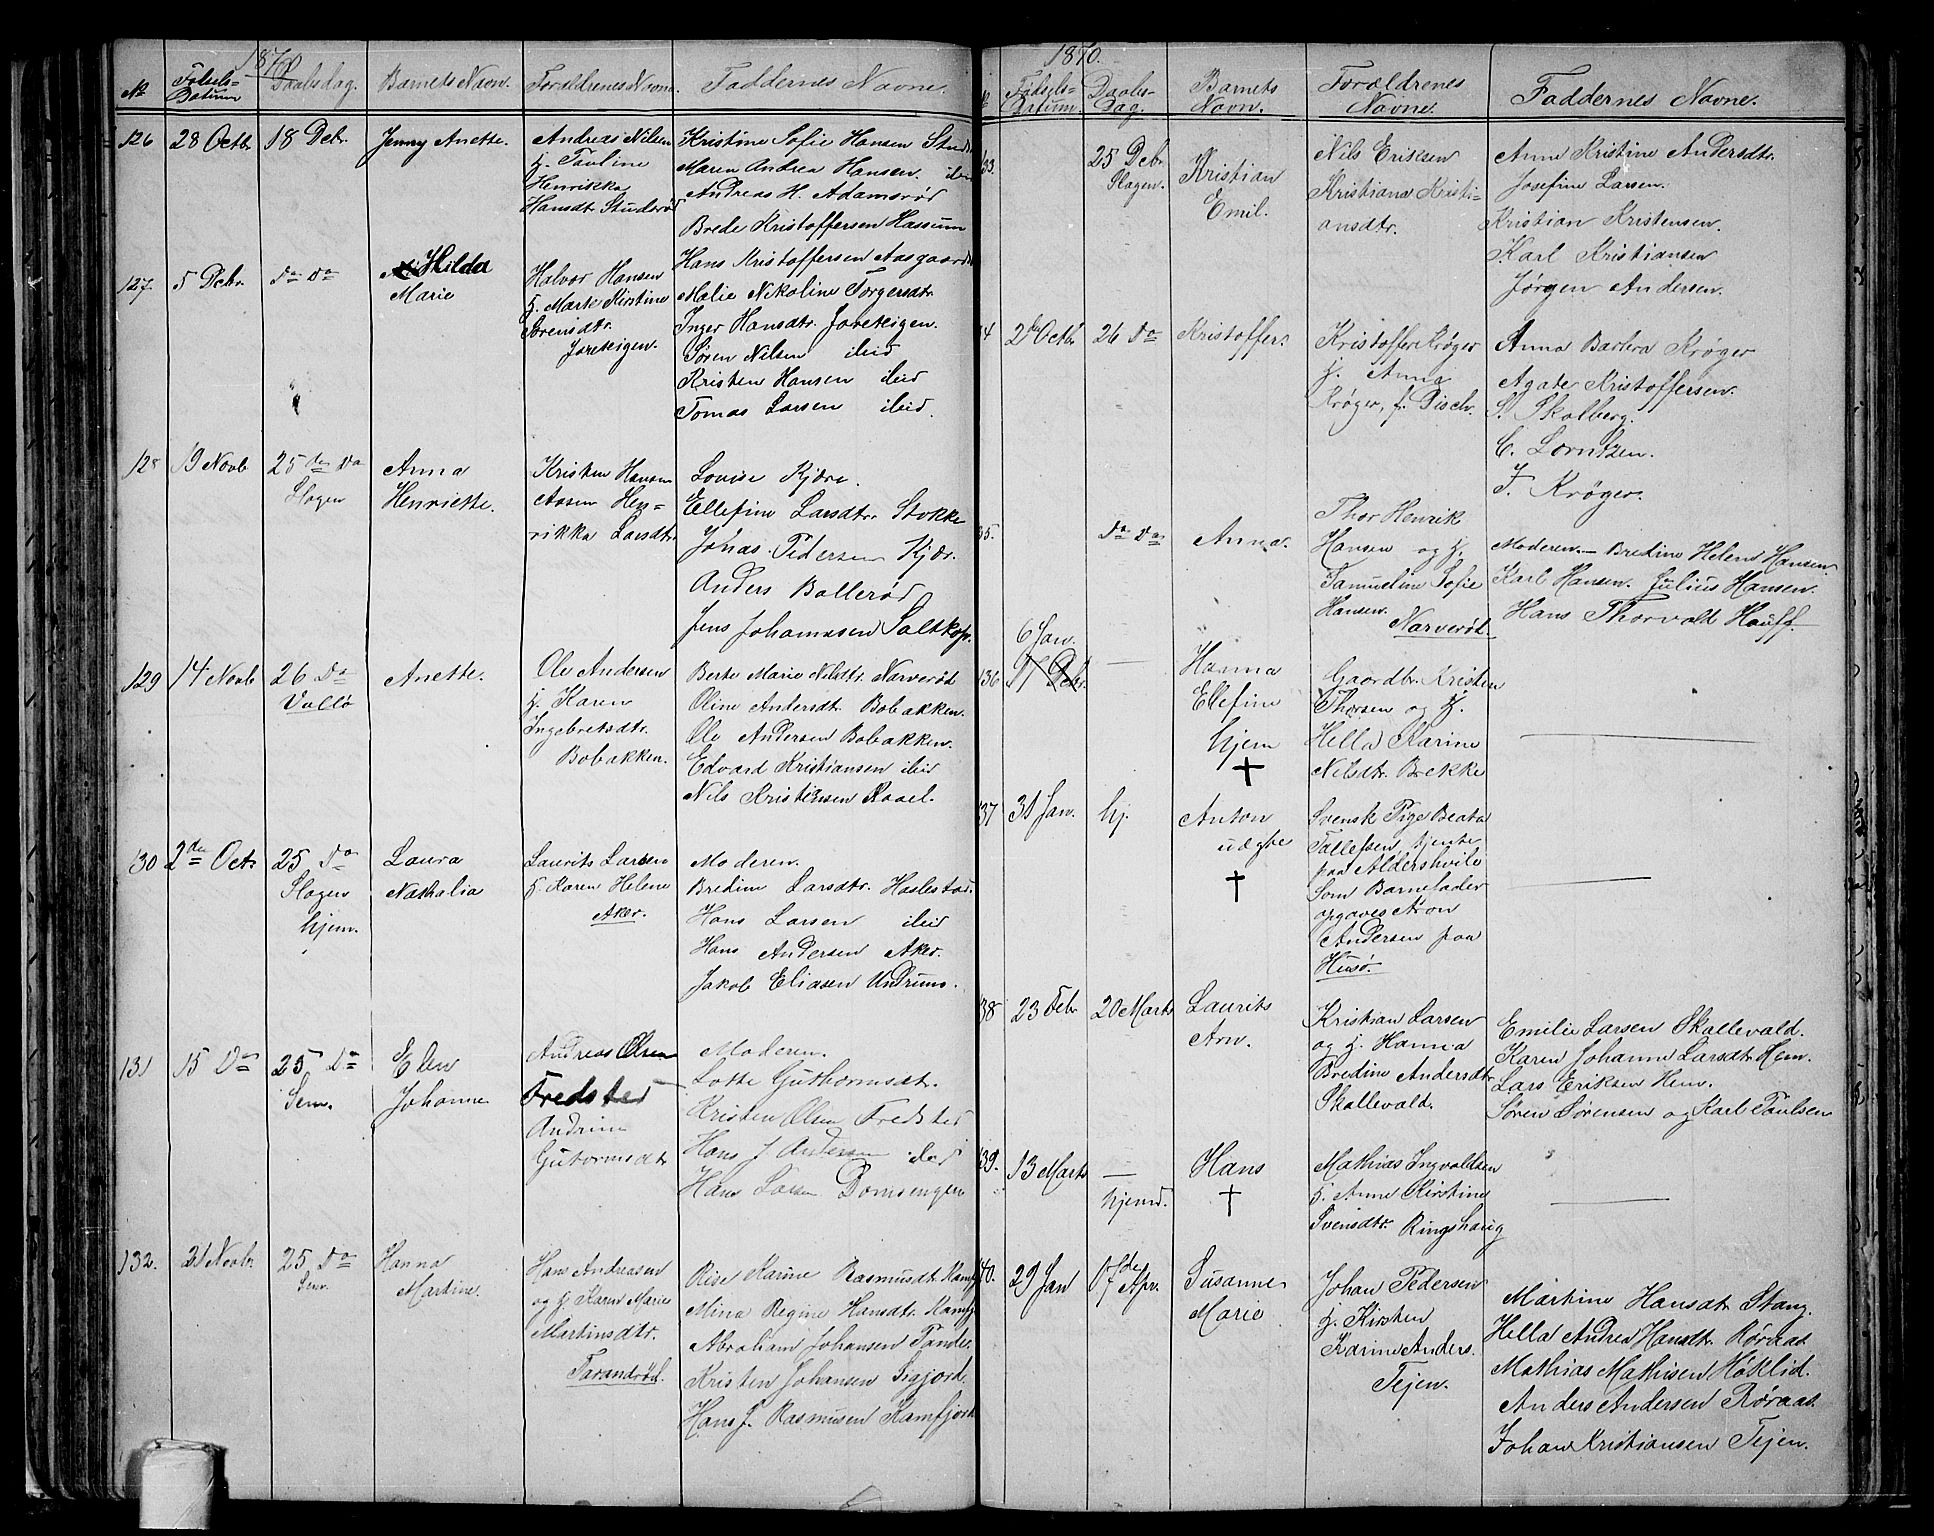 1870.
No
Fødsels-
Datum
Daabsdag.
Barnets Navn.
Forældrenes Navne.
Faddernes Navne.
126
28 Octb.
18 Debr.
Jenny Anette.
Andreas Nilsen
H. Pauline
Henrikka
Hansdt. Studerød
Kristine Sofie Hansen Stud
Maren Andrea Hansen
Andreas H. Adamsrød
Brede Kristoffersen Hassum
Hans Kristoffersen Aasgaard
127.
5 Debr.
Do Do
Hilda
Marie
Halvor Hansen
H. Marte Kirstine
Sørensdtr.
Joreteigen.
Malie Nikoline Torgersdtr.
Inger Hansdtr. Joreteigen.
Søren Nilsen ibid
Kristen Hansen ibid
Tomas Larsen ibid.
128
19 Novb
25 de Do
Slagen
Anna
Henriette.
Kristen Hansen
Aasen Hen-
rikka Larsdtr
Lovise Kjære.
Ellefine Larsdtr. Stokke
Johas. Pedersen Kjær.
Anders Bollerød
Jens Johannesen Saltkop.
129
14 Novb
26 Do
Vallø
Anette.
Ole Andersen
H. Karen
Ingebretsdtr.
Bobakken.
Berte Marie Nilsdtr. Narverød
Oline Andersdt. Bobakken.
Ole Andersen Bobakken.
Edvard Kristiansen ibid
Nils Kristensen Raael.
130
2den Oct.
25 Do
Slagen
hjem.
Laura
Nathalia
Laurits Larsen
H. Karen Helene
Aker.
Moderen.
Bredine Larsdtr. Haslestad
Hans Larsen ibid
Hans Andersen Aker.
Jakob Eliasen Undrum.
131
15 Do
25 Do
Sem.
Elen
Johanne
Andreas Olsen
Fredsted
Andrine
Guttormsdtr
Moderen.
Lotte Guthormsdt.
Kristen Olsen Fredsted
Hans J Andersen ibid
Hans Larsen Bomsengen
132.
21 Novb.
25 Do
Sem.
Hanna
Martine.
Hans Andreasen
og H. Karen Marie
Martinsdtr.
Tarandrød.
Rise Karine Rasmusdt. Kamfj
Mina Regine Hansdtr. Kamfj
Abraham Johansen Tande.
Kristen Johansen
Hans J. Rasmusen Kamfjord
1870.
No
Fødsels-
Datum.
Daabs-
Dag.
Barnets
Navn.
Forældrenes
Navne.
Faddernes Navne.
33.
25 Debr
Slagen.
Kristian
Emil.
Nils Eriksen
Kristiane Kristi-
ansdtr.
Anne Kristine Andersdtr.
Josefine Larsen.
Kristian Kristensen.
Karl Kristiansen
Jørgen Andersen.
4
2de Octb.
26 Do
Kristoffer.
Kristoffer Krøger
H. Anna
Krøger, f. Disch.
Anna Barbra Krøger
Agate Kristoffersen.
S. Skolberg.
C. Lorntzen.
F. Krøger.
35.
Do Do
Anna.
Thor Henrik
Hansen og H.
Samueline Sofie
Hansen.
Narverød.
Moderen.- Bredine Helene Hansen.
Karl Hansen. Julius Hansen.
Hans Thorvald Hauff.
136
6 Jan.
17 Debr.
—
Hanna
Ellefine
hjem
†
Gaardbr. Kristen
Thorsen og H.
Hella Karine
Nilsdtr. Brekke
37
31 Jan.
hj.
Anton
udøbt
†
Svensk Pige Beata
Tallefsen, tjente
paa Aldershvile
Som Barnefader
opgaves Aron
Andersen paa
Husø.
38
23 Feb.
20 Marts
Laurits
Arn.
Kristian Larsen
og H. Hanna
Bredine Andersdtr
Skallevald.
Emilie Larsen Skallevald.
Karen Johanne Larsdt. Hem.
Lars Eriksen Hem.
Søren Sørensen og Karl Paulsen
39.
13 Marts
—
hjemd.
Hans
†
Mathias Ingvoldsen
H. Anne Kirstine
Svensdtr. Ringshaug
40.
29 Jan
17de Apr.
Susanne
Marie
Johan Pedersen
H. Kirsten
Karine Anders.
Tejen.
Martine Hansdt. Stang.
Hella Andrea Hansdt. Røraas.
Mathias Mathisen Høklid.
Anders Andersen Røraas.
Johan Kristiansen Tejen.